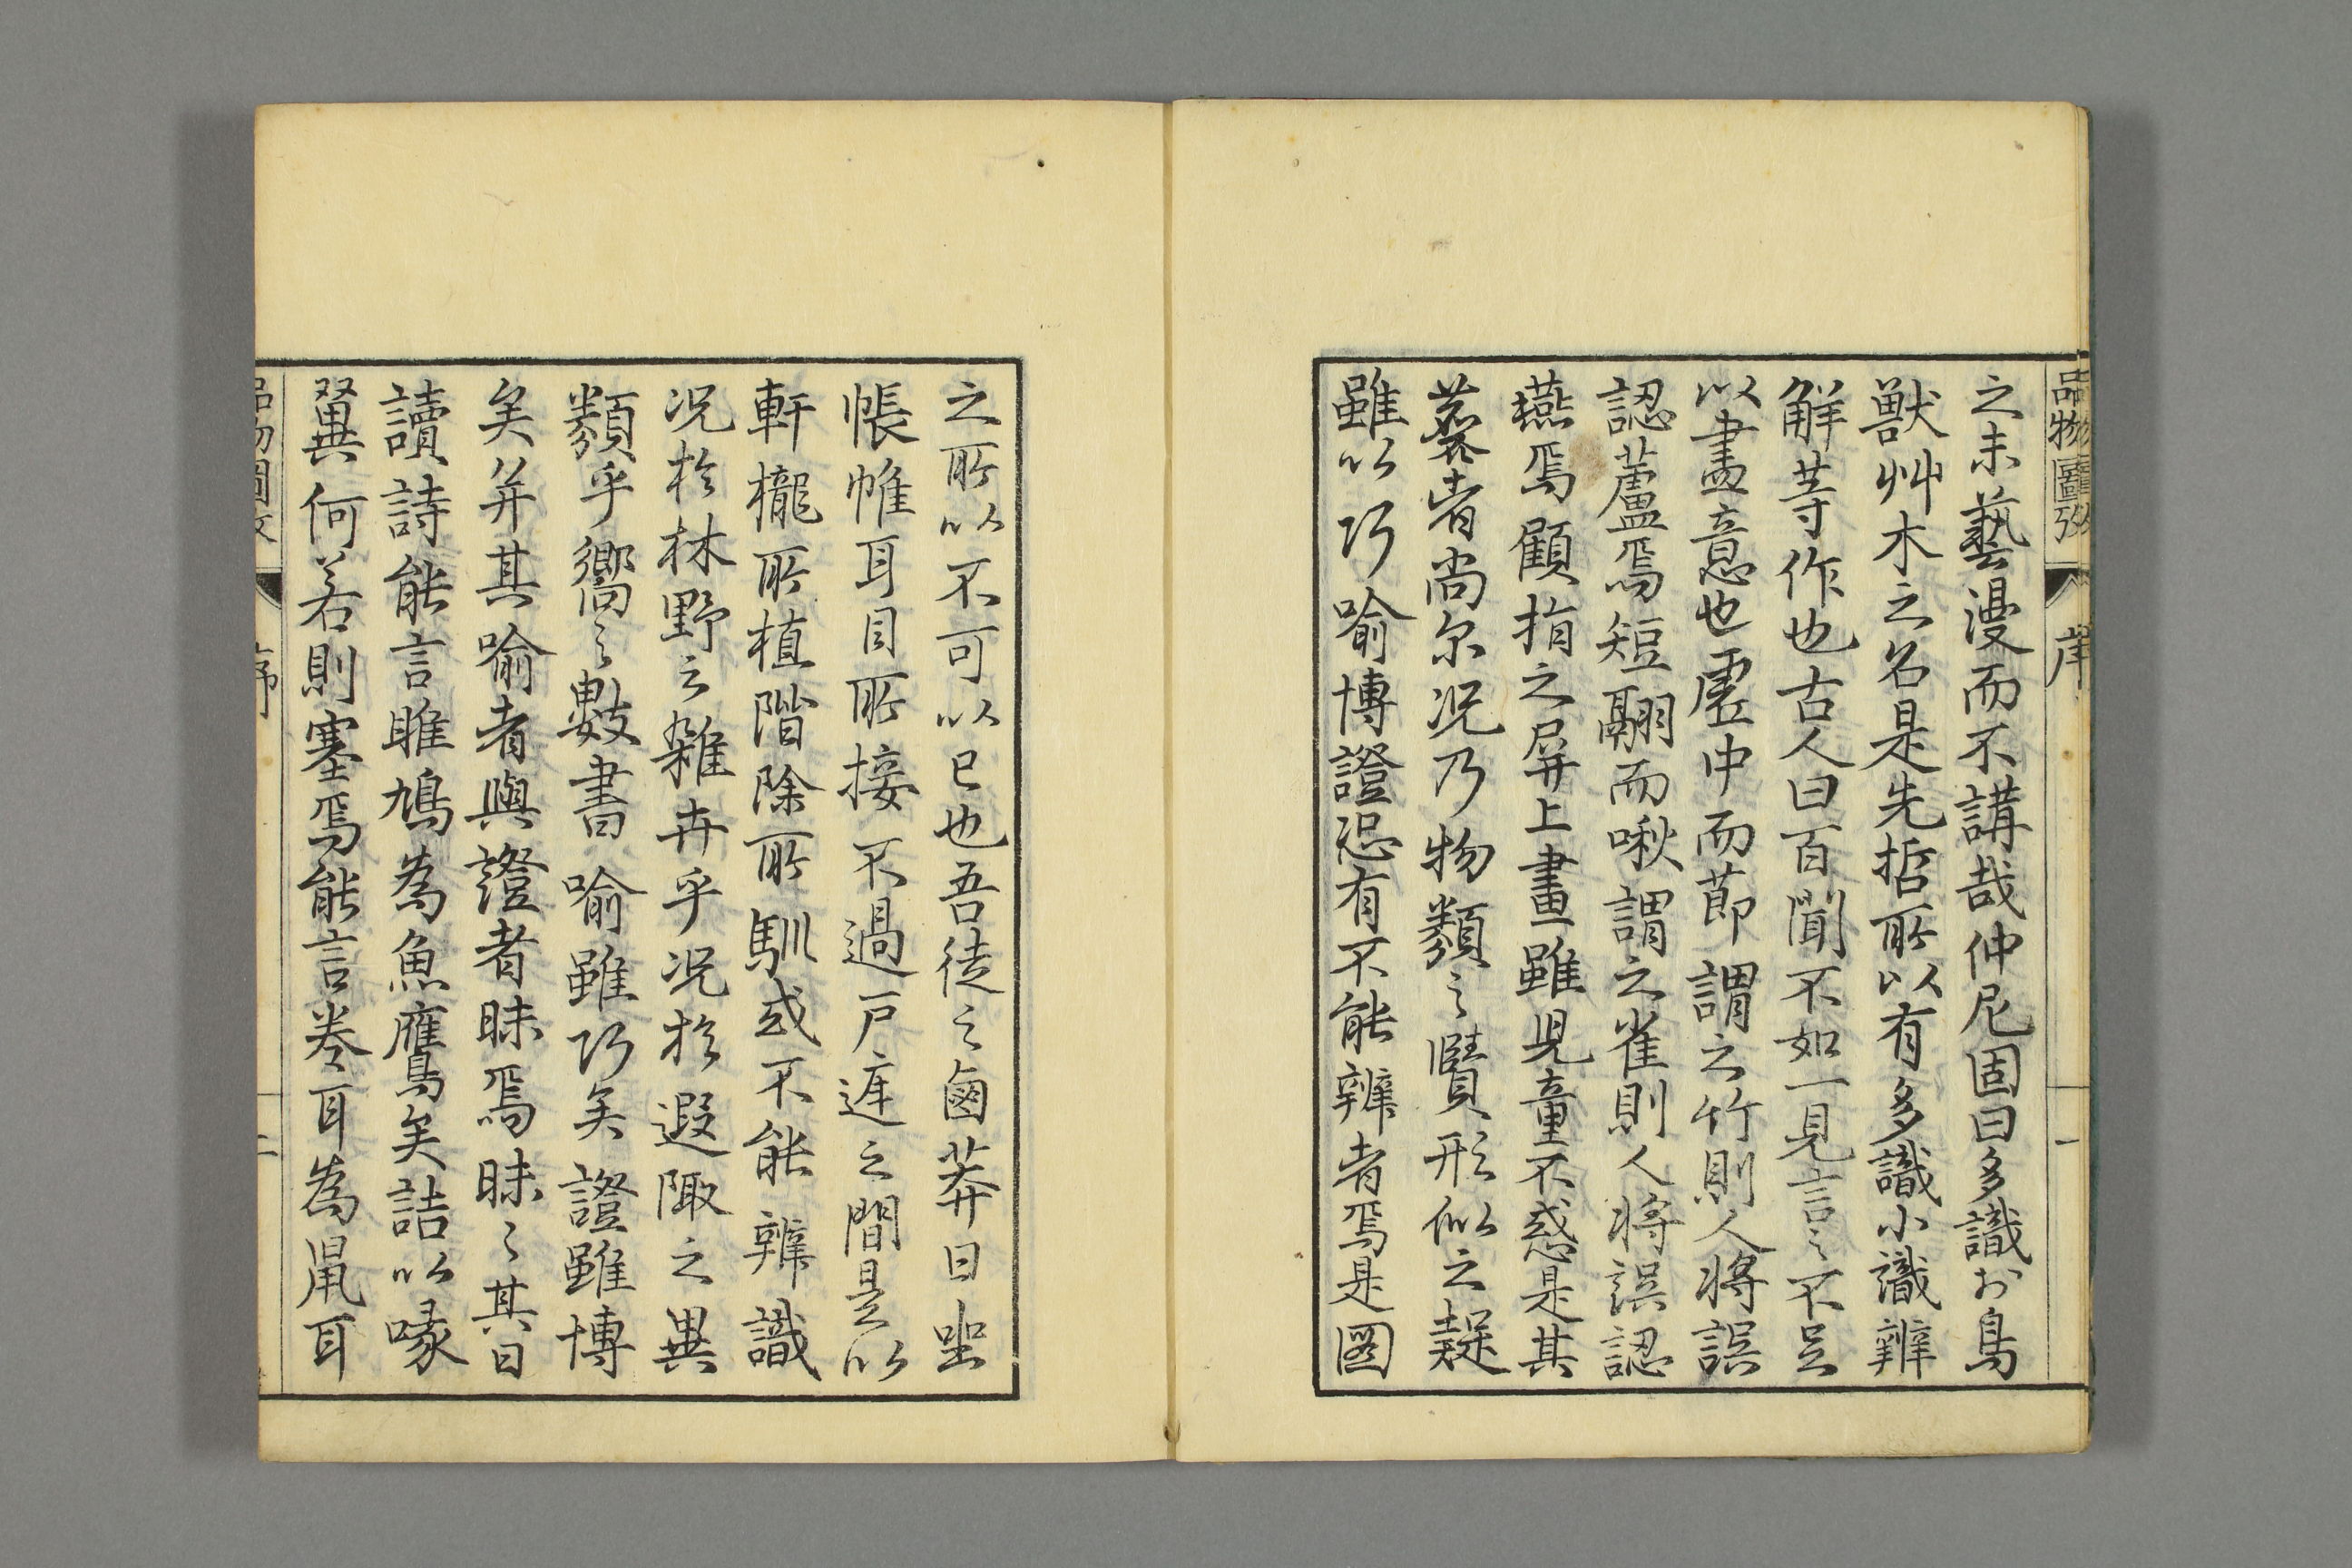 品物圖攷 序 一
之末藝漫而不講哉仲尼固曰多識於鳥
獸艸木之名是先哲所以有多識小識辨
解等作也古人曰百聞不如一見言之不足
以盡意也虛中而節謂之竹則人將誤
認蘆焉短翮而啾謂之雀則人將誤認
燕焉顧指之屏上畫雖児童不惑是其
著者尚尓况乃物類之賾形似之疑
雖以巧喻博證恐有不能辨者焉是圖
之所以不可以已也吾徒之鹵莽日坐
帳帷耳目所接不過戸庭之間是以
軒櫳所植階除所馴或不能辨識
况於林野之雜卉乎况於遐陬之異
類乎嚮之數書喻雖巧矣證雖博
矣并其喻者與證者昧焉昧之其曰
讀詩能言雎鳩為魚鷹矣詰以喙
翼何若則塞焉能言卷耳為鼠耳
品物圖攷 序 二